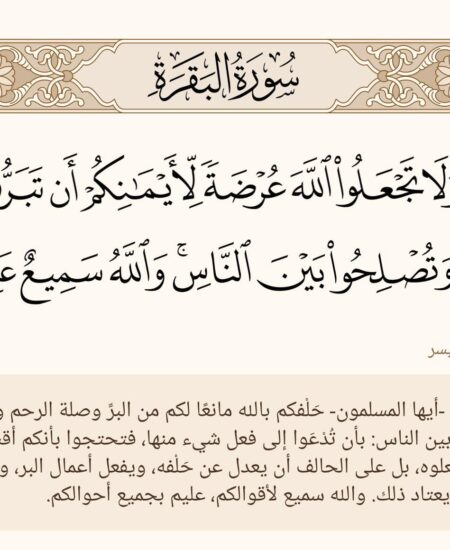 سُورَةُ البَقَرَةِ
وَلَا تَجْعَلُوا۟ ٱللَّهَ عُرْضَةً لِّأَيْمَـٰنِكُمْ أَن تَبَرُّ
وَتُصْلِحُوا۟ بَيْنَ ٱلنَّاسِ ۗ وَٱللَّهُ سَمِيعٌ
يسر
-أيها المسلمون- حَلْفكم بالله مانعًا لكم من البرِّ وصلة الرحم و
بين الناس: بأن تُدْعَوا إلى فعل شيء منها، فتحتجوا بأنكم أق
علوه، بل على الحالف أن يعدل عن حَلْفه، ويفعل أعمال البر، و
يعتاد ذلك. والله سميع لأقوالكم، عليم بجميع أحوالكم.